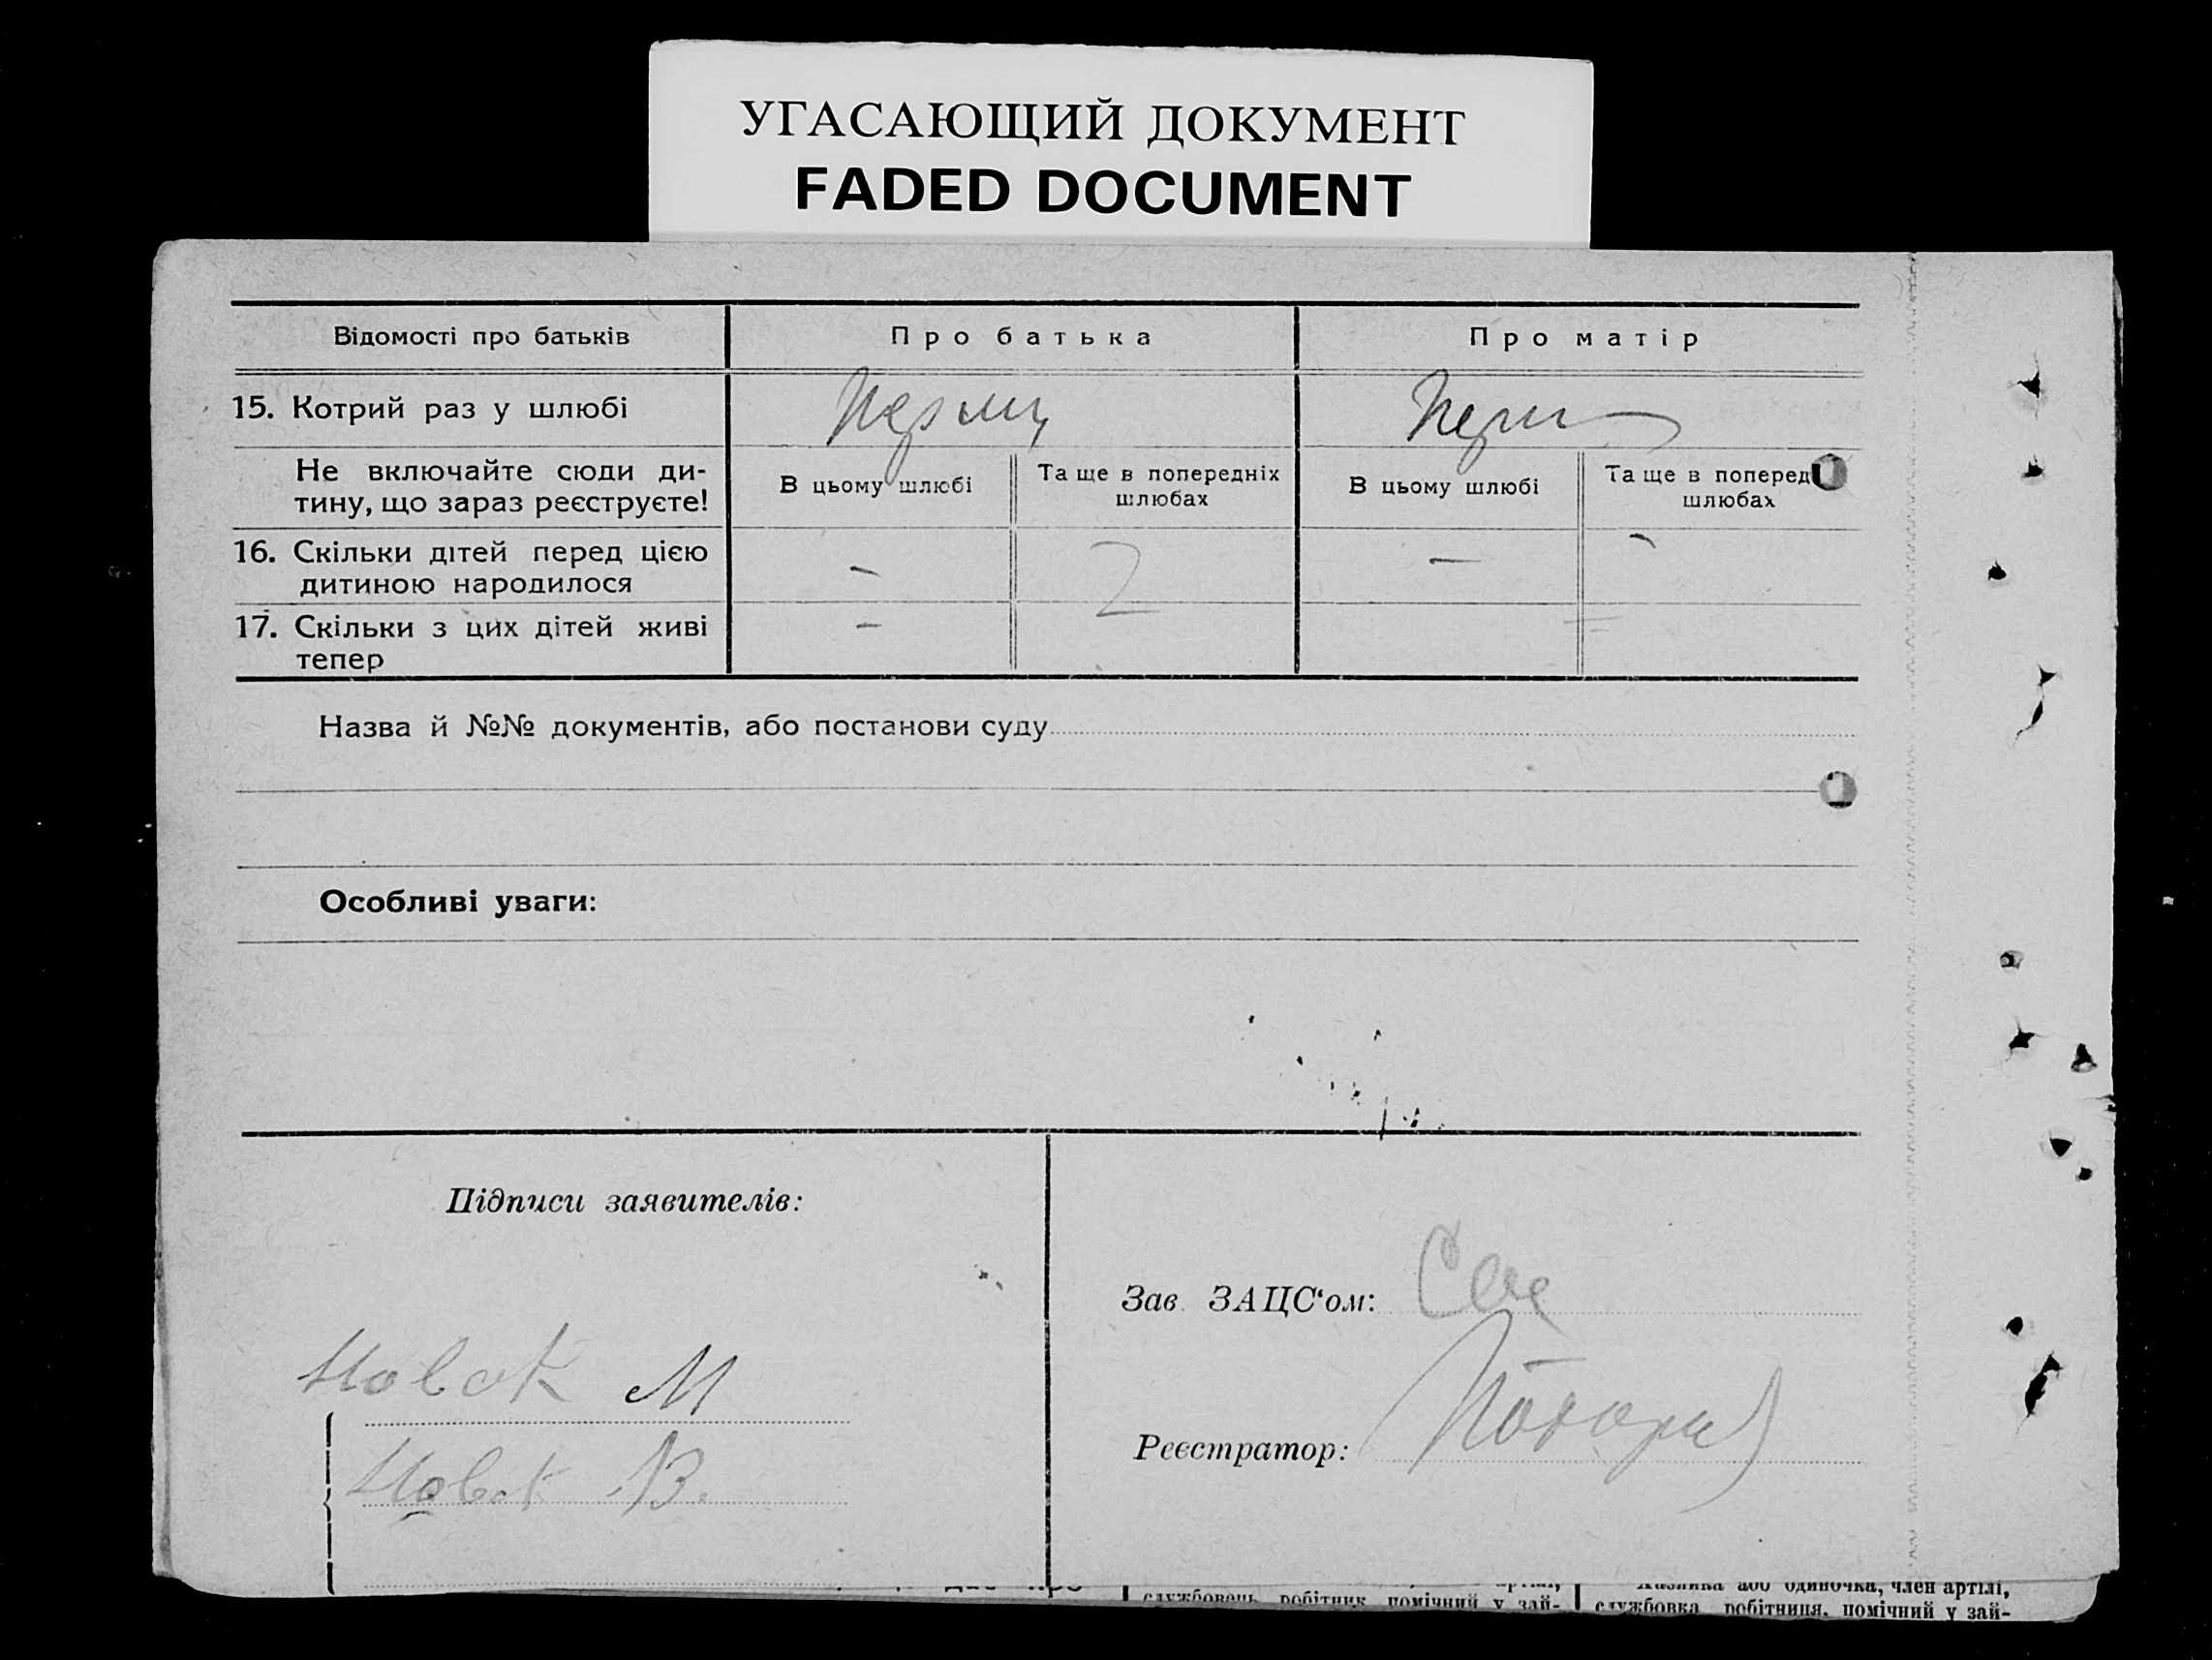 УГАСАЮЩИЙ ДОКУМЕНТ
FADED DOCUMENT
Відомості про батьків
Про батька
Про матір
15. Котрий раз у шлюбі
Не включайте сюди ди-
тину, що зараз реєструєте!
В цьому шлюбі
Та ще в попередніх
шлюбах
В цьому шлюбі
Та ще в поперед
шлюбах
16. Скільки дітей перед цією
дитиною народилося
-
2
-
-
17. Скільки з цих дітей живі
тепер
-
Назва й №№ документів, або постанови суду
Особливі уваги:
Підписи заявителів:
Новак М
Новак В.
Зав. ЗАЦС‘ом:
Реєстратор:
службовець, робітник, помічний у зай-
хазяйка або одиночка, член артілі,
службовка, робітниця, помічний у зай-